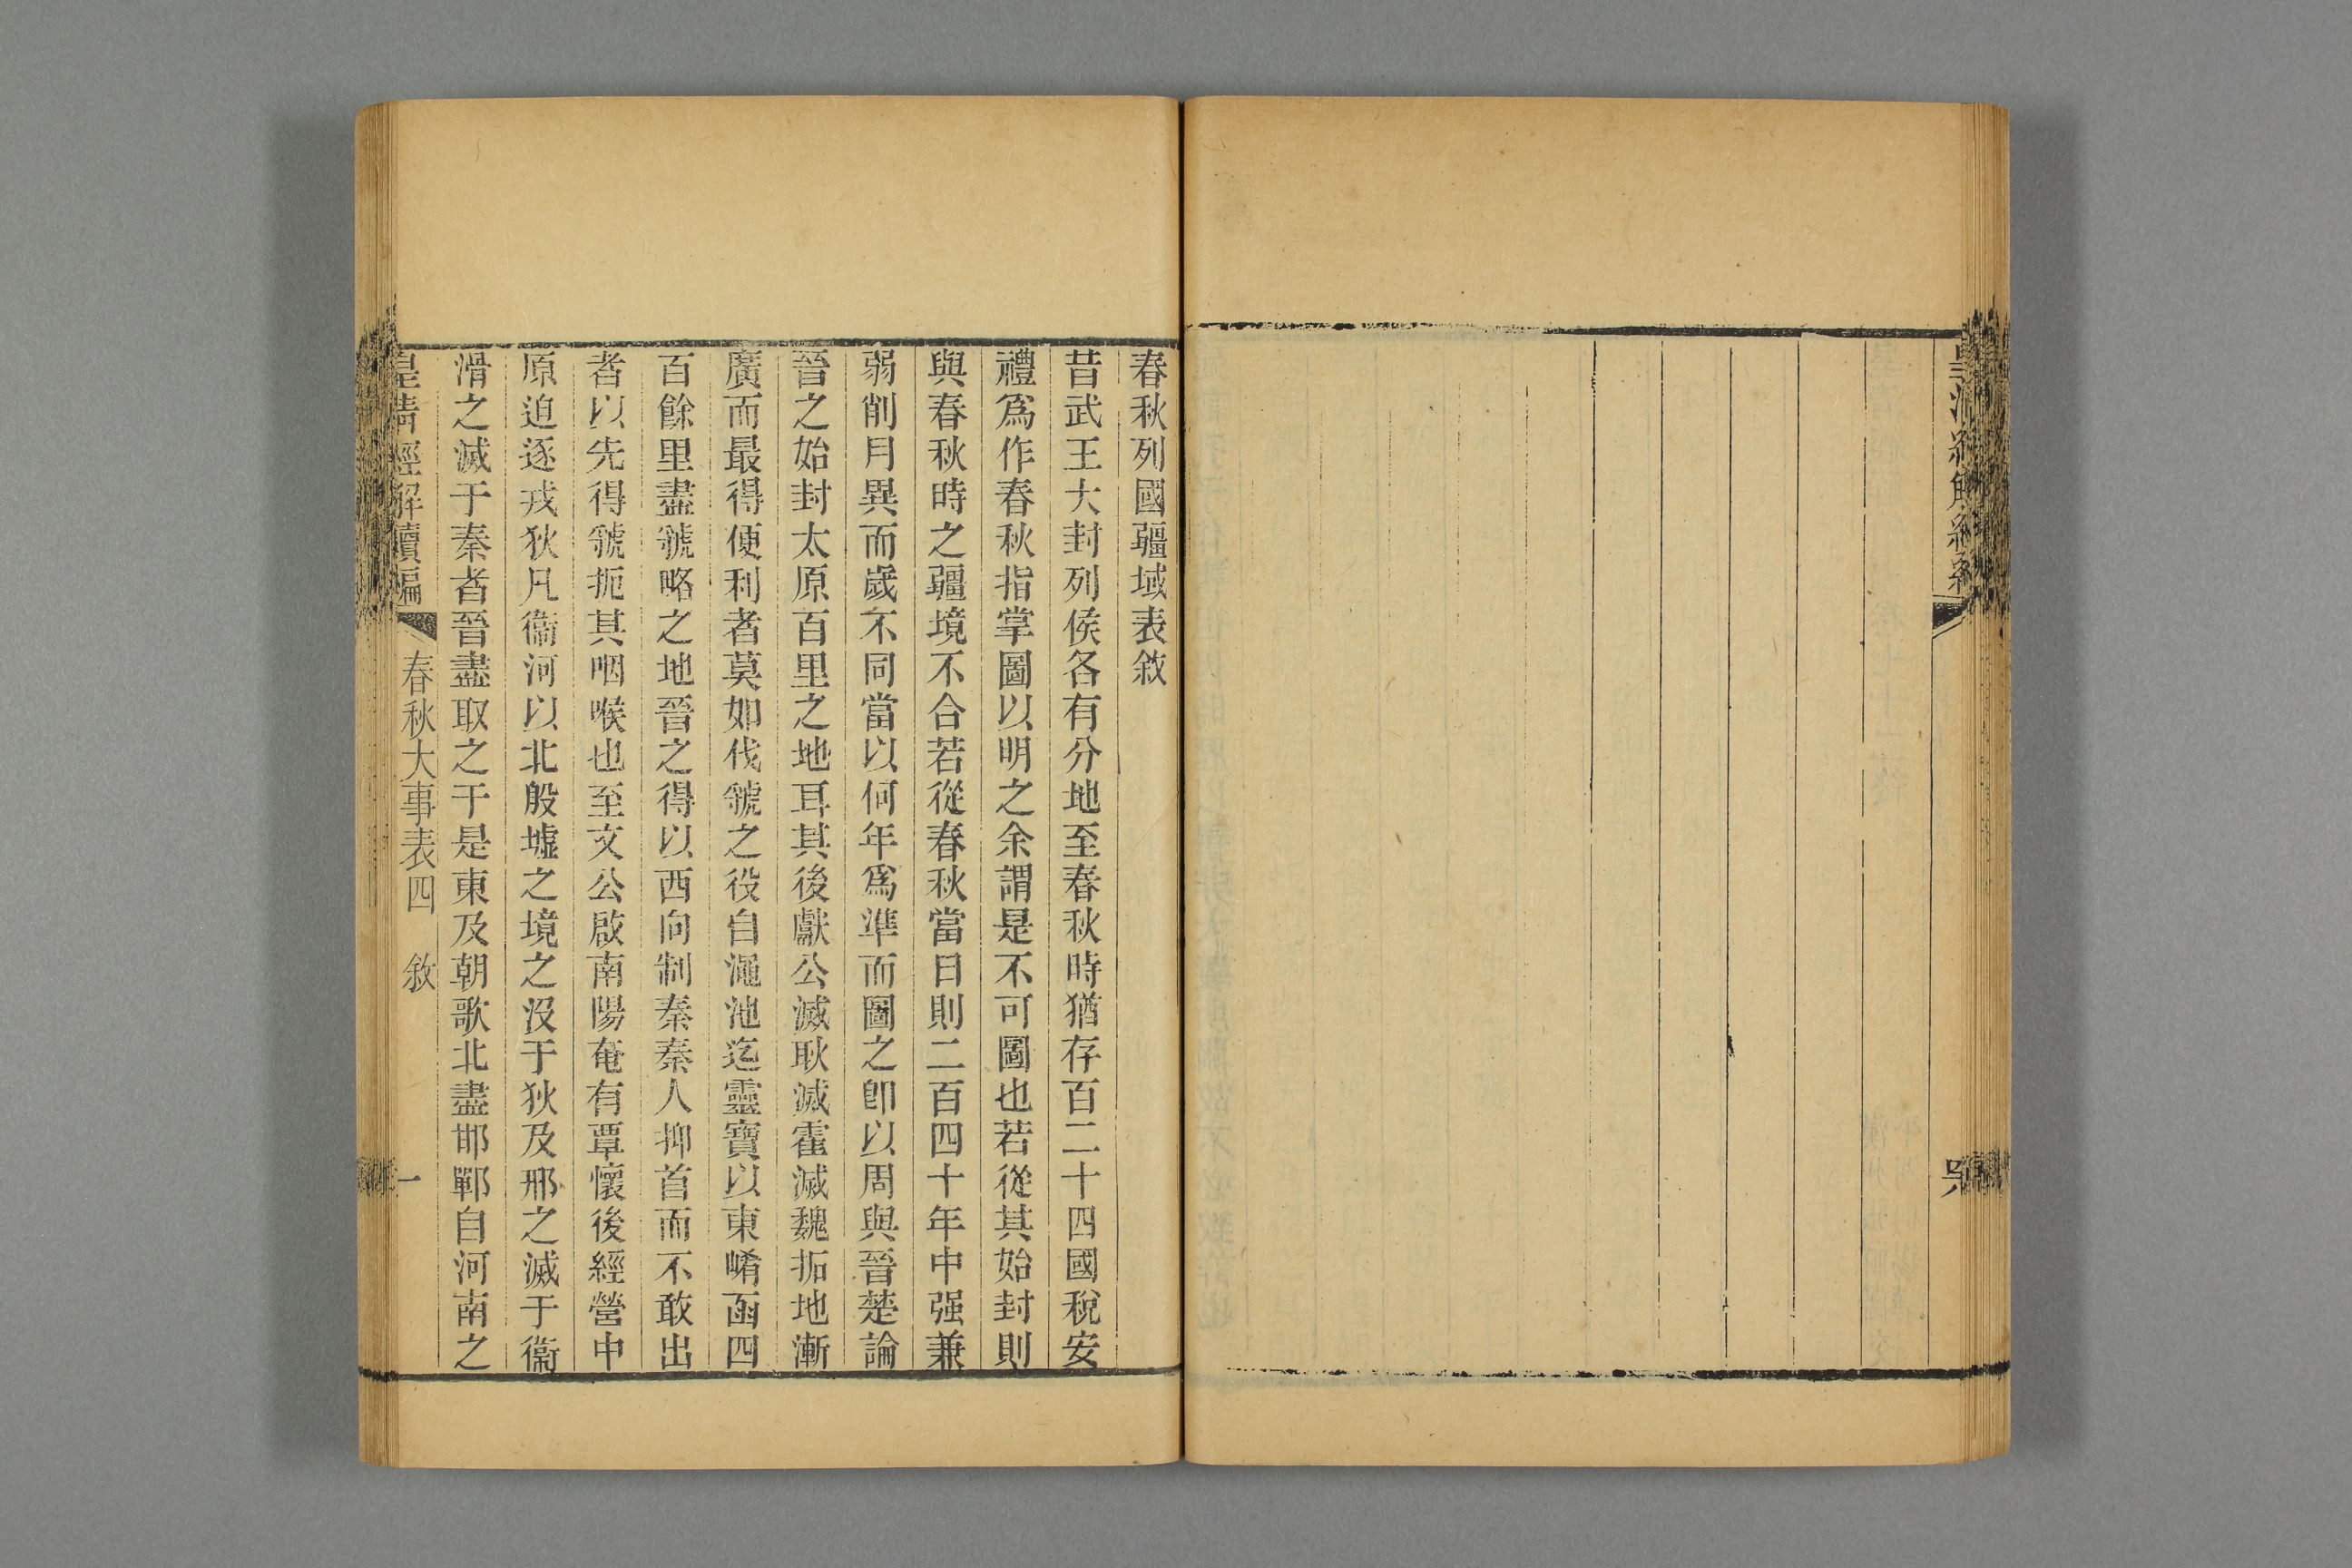 春秋列國疆域表敘
昔武王大封列侯各有分地至春秋時猶存百二十四國稅安
禮爲作春秋指掌圖以明之余謂是不可圖也若從其始封則
與春秋時之疆境不合若從春秋當日則二百四十年中强兼
弱削月異而歲不同當以何年爲準而圖之卽以周與晉楚論
晉之始封太原百里之地耳其後獻公滅耿滅霍滅魏拓地漸
廣而最得便利者莫如伐虢之役自澠池迄靈寶以東崤函四
百餘里盡虢略之地晉之得以西向制秦秦人抑首而不敢出
者以先得虢扼其咽喉也至文公啟南陽奄有覃懷後經營中
原迫逐戎狄凡衞河以北殷墟之境之沒于狄及邢之滅于衞
滑之滅于秦者晉盡取之于是東及朝歌北盡邯鄲自河南之
皇清經解續編 春秋大事表四 敘 一